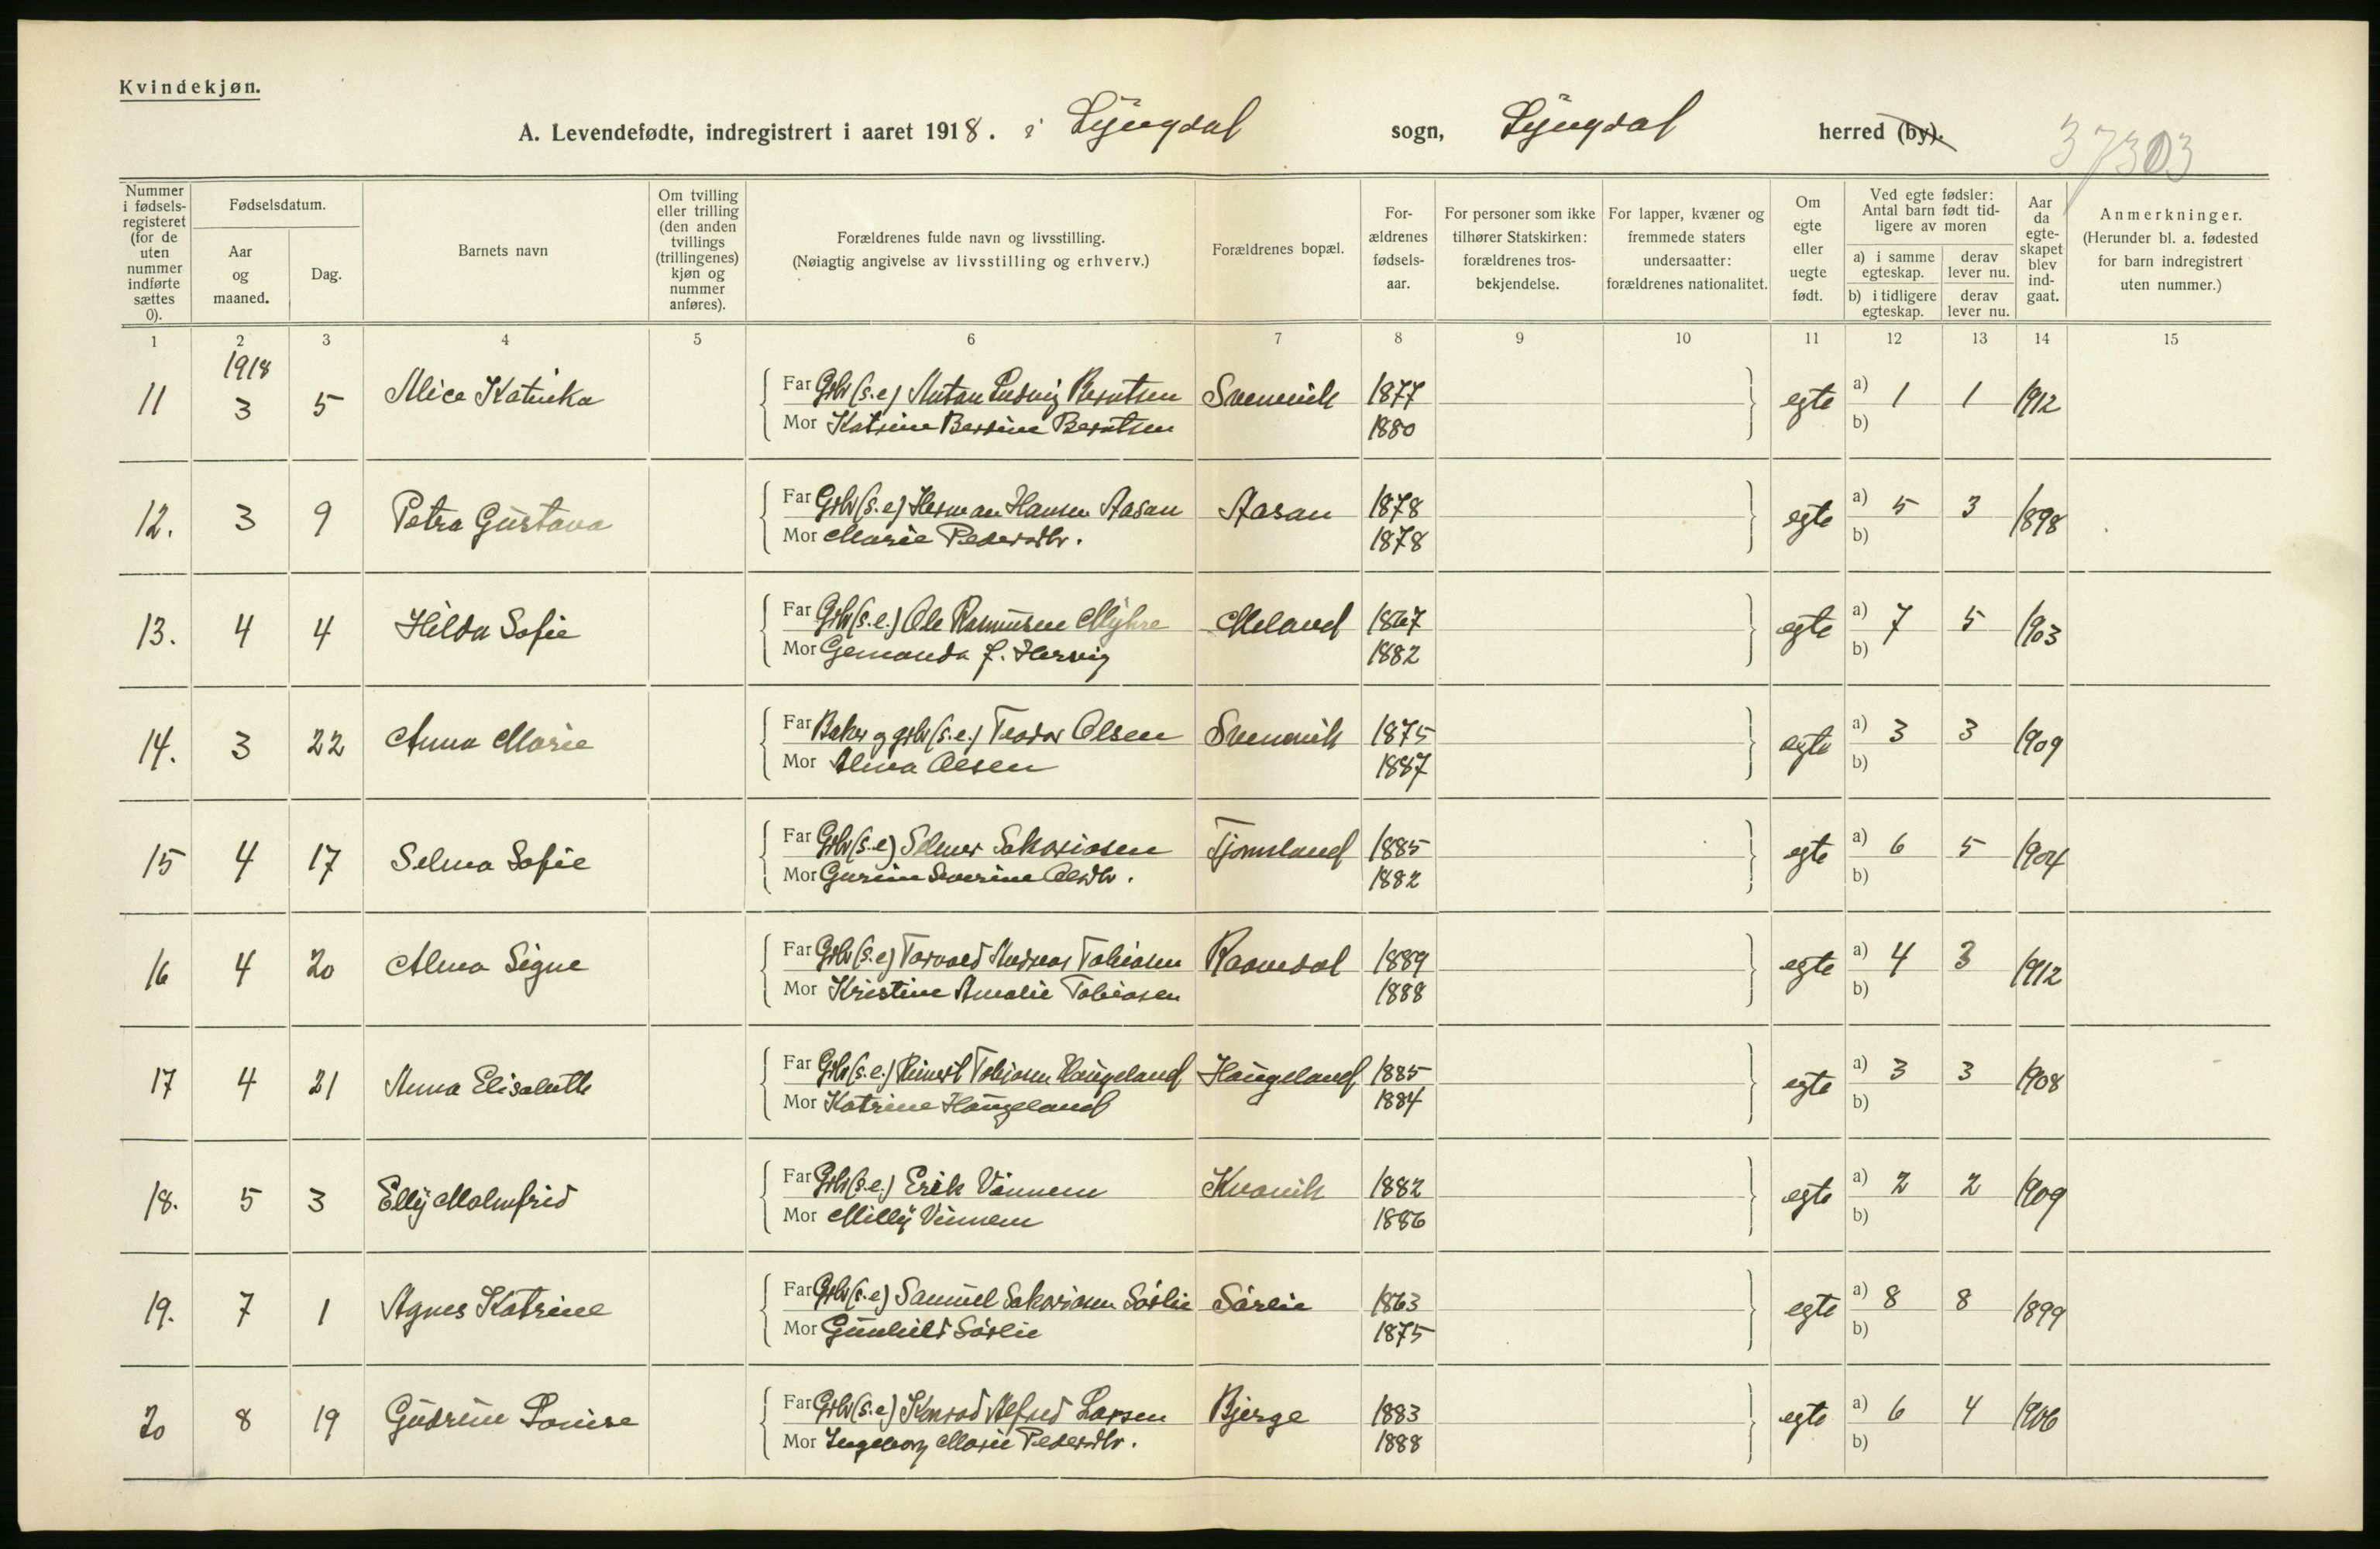 Kvindekjøn.
A. Levendefødte, indregistrert i aaret 1918. i Lyngdal sogn, Lyngdal herred (by).
37303
Nummer i fødsels-registeret (for de uten nummer indførte sættes 0).
Fødselsdatum.
Aar og maaned.
Dag.
Barnets navn
Om tvilling eller trilling (den anden tvillings (trillingenes) kjøn og nummer anføres).
Forældrenes fulde navn og livsstilling.
(Nøiagtig angivelse av livsstilling og erhverv.)
Forældrenes bopæl.
For-ældrenes fødsels-aar.
For personer som ikke tilhører Statskirken: forældrenes tros-bekjendelse.
For lapper, kvæner og fremmede staters undersaatter: forældrenes nationalitet.
Om egte eller uegte født.
Ved egte fødsler: Antal barn født tid-ligere av moren
a) i samme egteskap.
derav lever nu.
b) i tidligere egteskap.
derav lever nu.
Aar da egte-skapet blev ind-gaat.
Anmerkninger.
(Herunder bl. a. fødested for barn indregistrert uten nummer.)
1 2 3 4 5 6 7 8 9 10 11 12 13 14 15
1918
11 3 5 Alice Katinka Far Grbr (s.e) Anton Ludvig Berntsen 1877 egte a) 1 1 1912
Mor Katrine Bertine Berntsen 1880 b)
12. 3 9 Petra Gustava Far Grbr (s.e) Herman Hansen Aasan Aasan 1878 egte a) 5 3 1898
Mor Marie Pedersdtr. 1878 b)
13. 4 4 Hilda Sofie Far Grbr (s.e.) Ole Rasmusen Myhre Meland 1867 egte a) 7 5 1903
Mor Gemanda f. Hervig 1882 b)
14. 3 22 Anna Marie Far Baker og grbr (s.e.) Teodor Olsen 1875 egte a) 3 3 1909
Mor Alma Olsen 1887 b)
15 4 17 Selma Sofie Far Grbr (s.e) Selmer Sakariasen Tjomsland 1885 egte a) 6 5 1904
Mor Gurine Severine Olsdtr. 1882 b)
16 4 20 Alma Signe Far Grbr (s.e) Torvald Andreas Tobiasen 1889 egte a) 4 3 1912
Mor Kristine Amalie Tobiasen 1888 b)
17 4 21 Anna Elisabeth Far Grbr (s.e.) Reinert Tobiasen Haugeland Haugeland 1885 egte a) 3 3 1908
Mor Katrine Haugeland 1884 b)
18. 5 3 Elly Malmfrid Far Grbr (s.e.) Erik Vinnem Kvavik 1882 egte a) 2 2 1909
Mor Milly Vinnem 1886 b)
19. 7 1 Agnes Katrine Far Grbr (s.e) Samuel Sakariasen Sørlie Sørlie 1863 egte a) 8 8 1899
Mor Gunhild Sørlie 1875 b)
20 8 19 Gudrun Louise Far Grbr (s.e) Konrad Alfred Larsen Bjerge 1883 egte a) 6 4 1906
Mor Ingeborg Marie Pedersdtr. 1888 b)